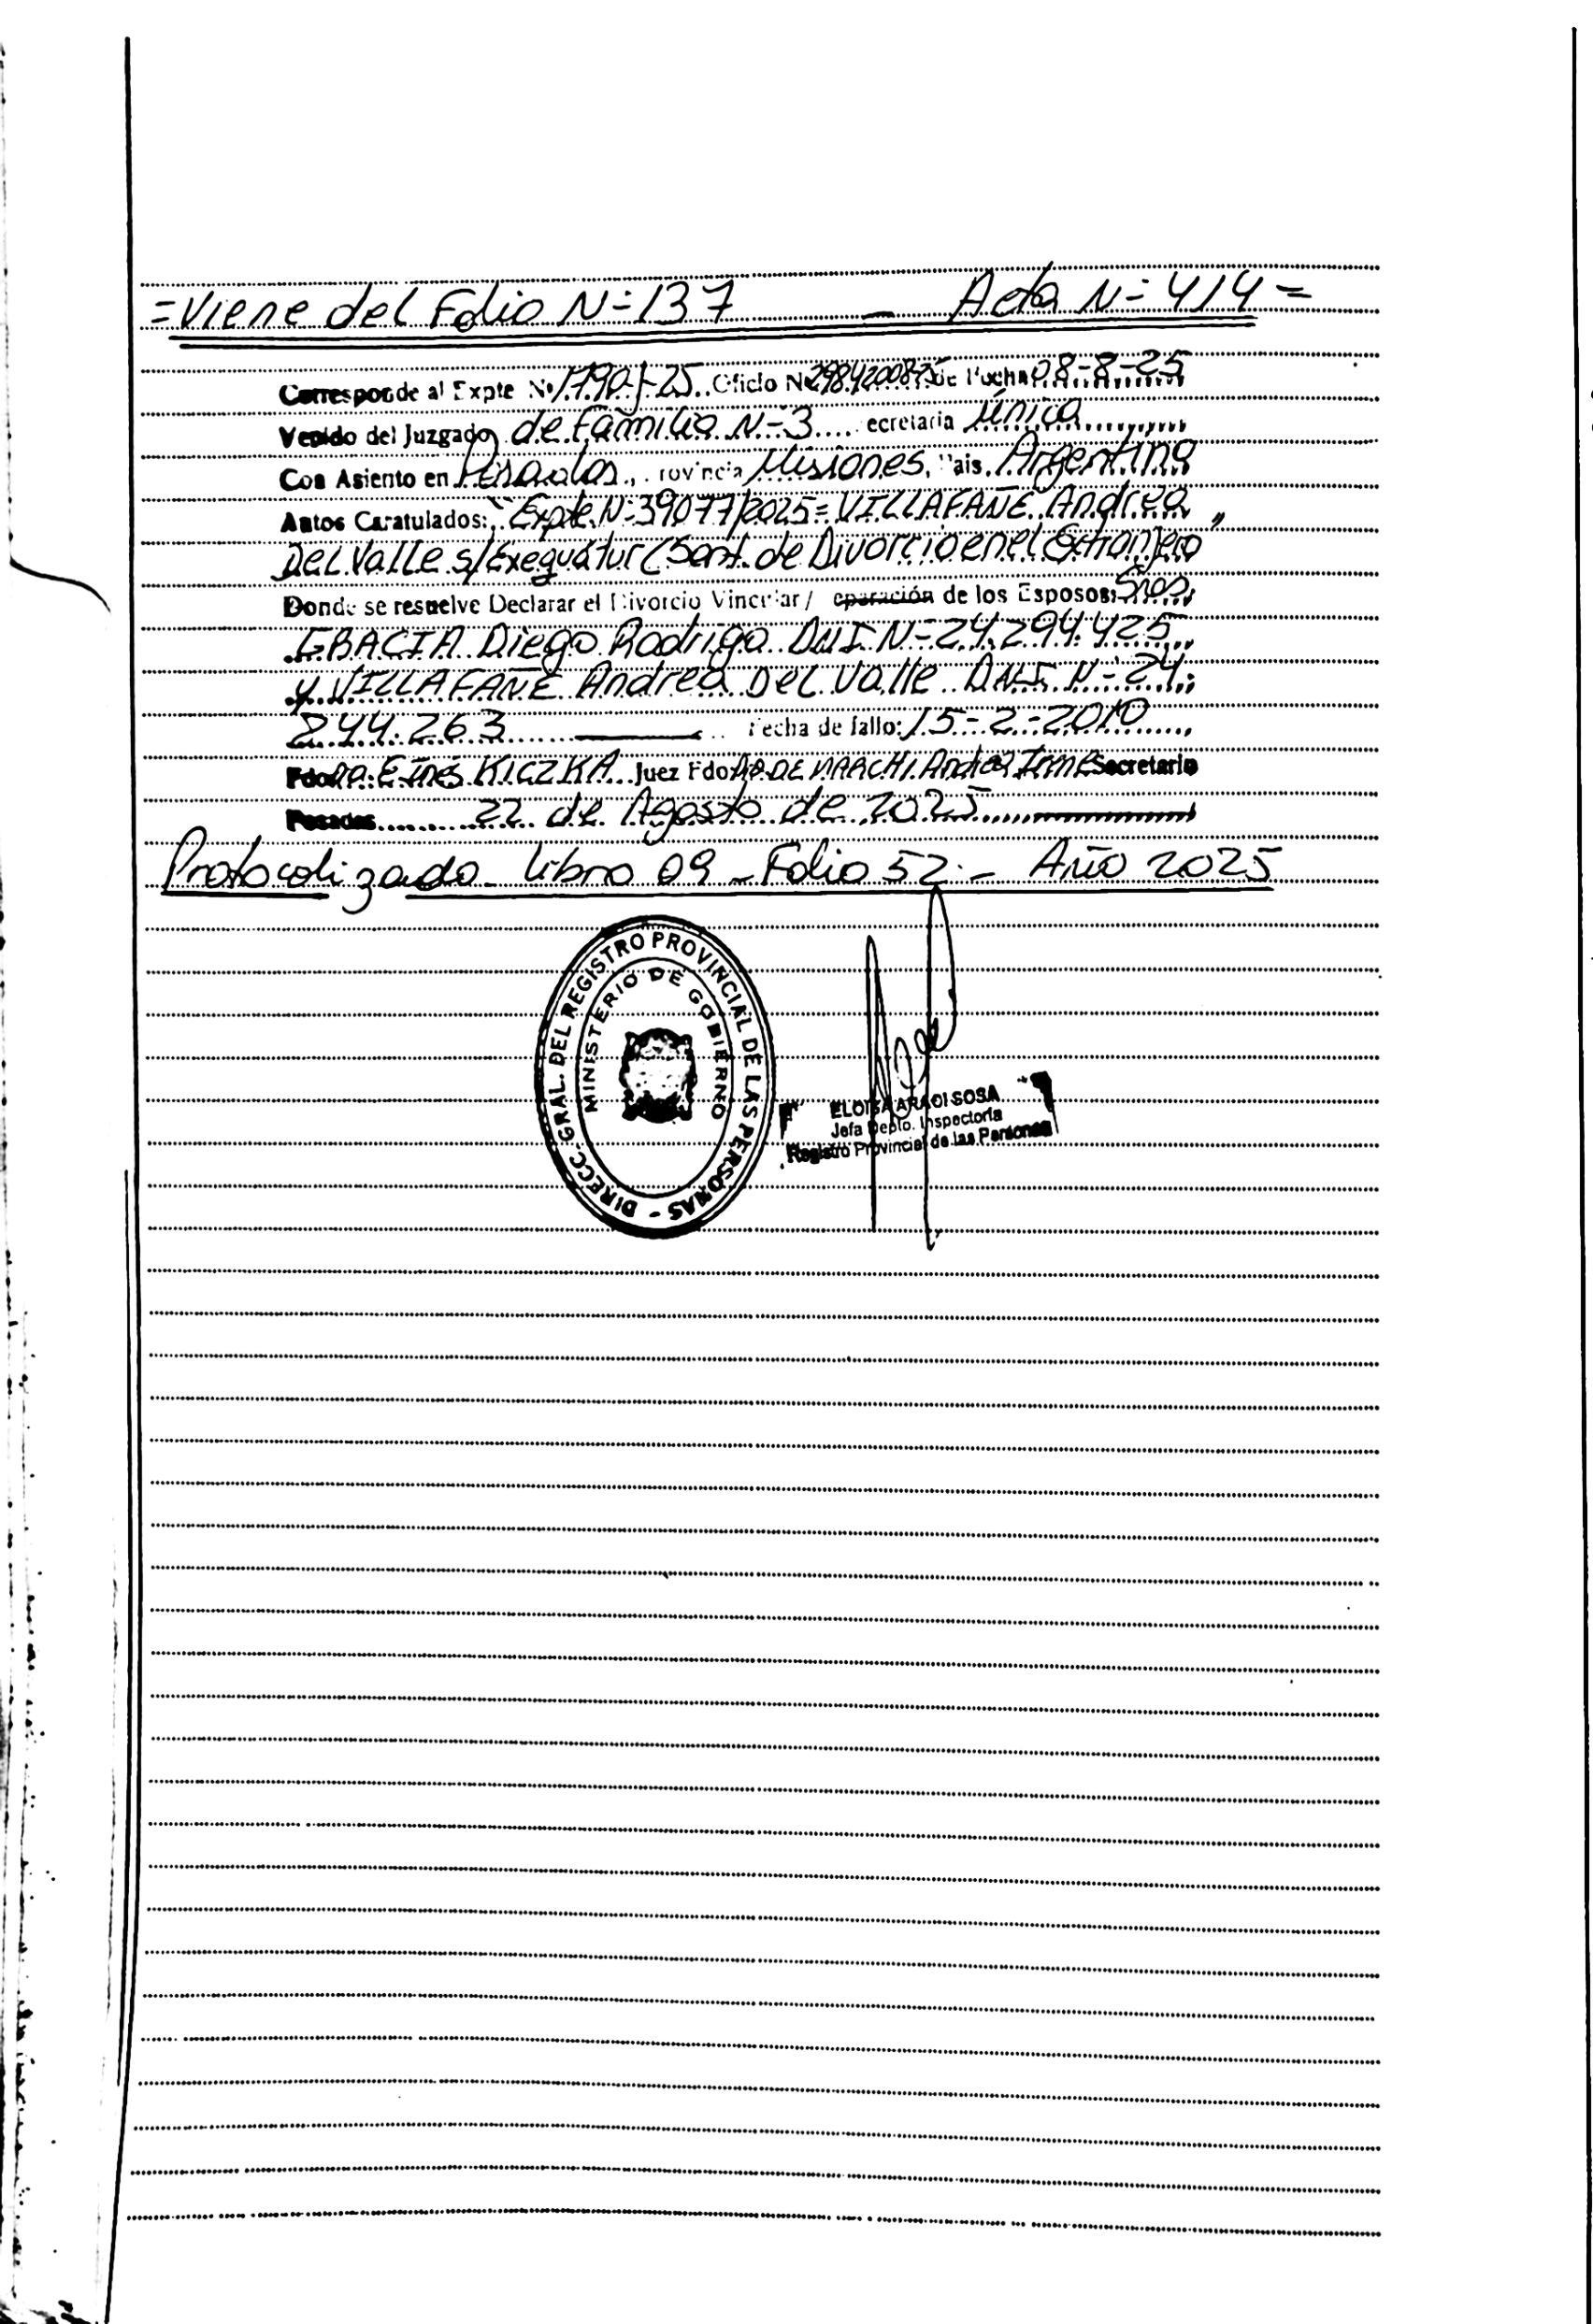 =Viene del Folio N=137 - Acta N=414=
Corresponde al Expte Nº 1790-J-25 Oficio Nº 298420082 de Fecha 08-8-25
Venido del Juzgado de Familia N=3 ecretaria Única
Con Asiento en Posadas, rovincia Misiones, Pais Argentina
Autos Caratulados: "Expte. N=39077/2025= VILLAFAÑE Andrea
Del Valle s/Exequátur (Sent. de Divorcio en el Extranjero"
Donde se resuelve Declarar el Divorcio Vincular/ eparación de los Esposos: Sres
Diego Rodrigo DNI N=24.294.425
y VILLAFAÑE Andrea Del Valle DNI N=24.
244.263 Fecha de fallo: 15-2-2010
Fdo KICZKA Juez Fdo DE MARCHI Andrea Irene Secretario
Posadas 22 de Agosto de 2025
Protocolizado Libro 09 - Folio 52 - Año 2025
DIRECC. GRAL. DEL REGISTRO PROVINCIAL DE LAS PERSONAS -
MINISTERIO DE GOBIERNO
ELOISA ARACI SOSA
Jefa Depto. Inspectoría
Registro Provincial de las Personas